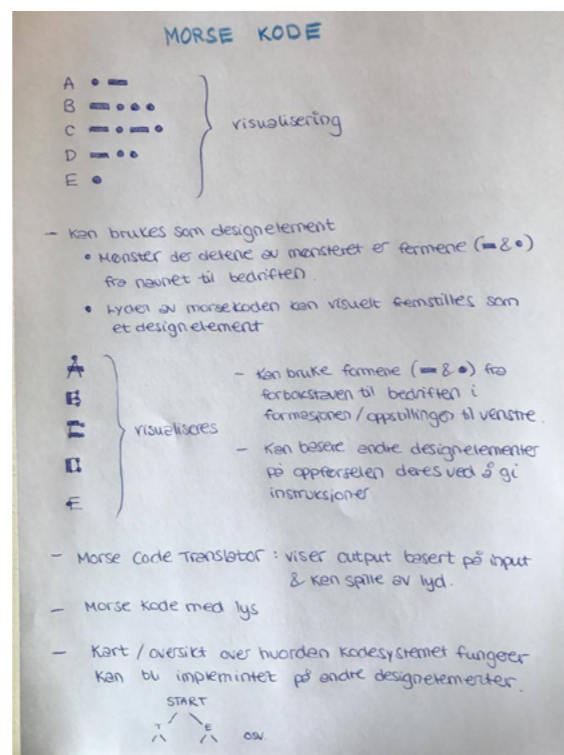 MORSE KODE
A •–
B –•••
C –•–•
D –••
E •
visualisering
– Kan brukes som designelement
• Mønster der delene av mønsteret er formene (– & •)
fra navnet til bedriften.
• Lyden av morsekoden kan visuelt fremstilles som
et designelement
A
B
C
D
E
visualiseres
– Kan bruke formene (– & •) fra
forbokstaven til bedriften i
formasjonen / oppstillingen til venstre.
– Kan basere andre designelementer
på oppførselen deres ved å gi
instruksjoner.
– Morse Code Translator : viser output basert på input
& kan spille av lyd.
– Morse Kode med lys
– Kart / oversikt over hvordan kodesystemet fungerer
kan bli implimintet på andre designelementer.
START
T E
osv.